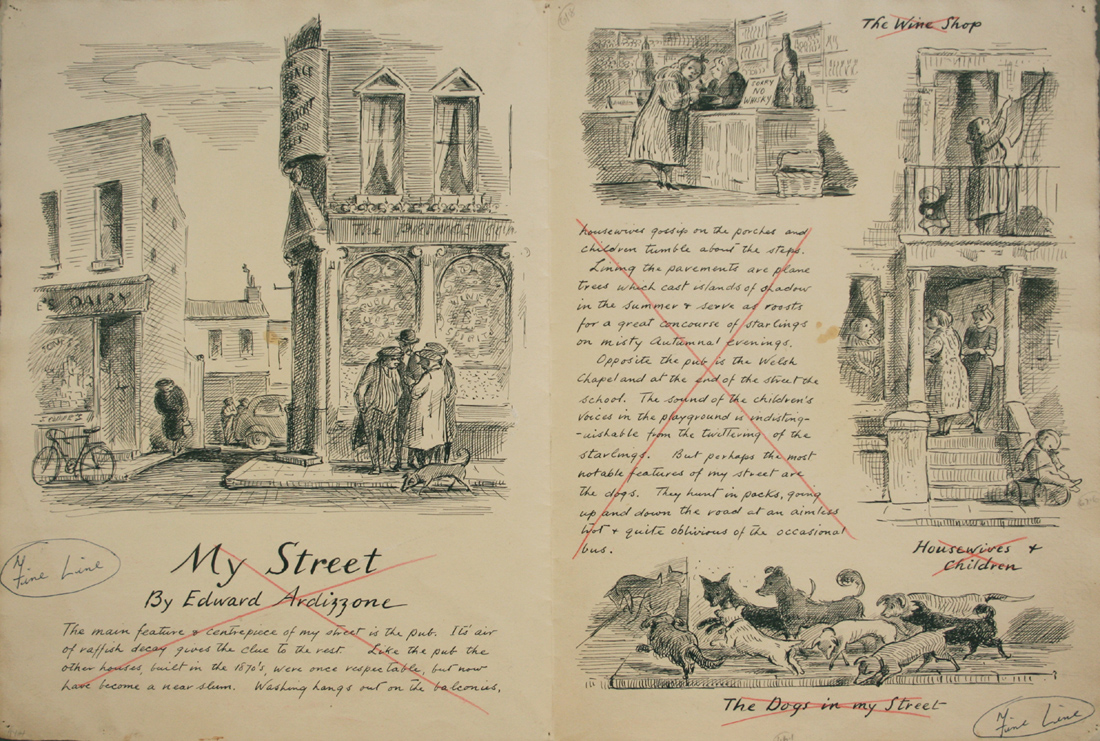 DAIRY
My Street
By Edward Ardizzone
The main feature & centrepiece of my street is the pub. It's air
of raffish decay gives the clue to the rest. Like the pub the
other houses, built in the 1870's, were once respectable, but now
have become a near slum. Washing hangs out on the balconies,
Fine Line
The Wine Shop
SORRY
NO
WHISKY
housewives gossip on the porches and
children tumble about the steps.
Lining the pavements are plane
trees which cast islands of shadow
in the summer & serve as roosts
for a great concourse of starlings
on misty Autumnal evenings.
Opposite the pub is the Welsh
Chapel and at the end of the street the
school. The sound of the children's
voices in the playground is indisting-
uishable from the twittering of the
starlings. But perhaps the most
notable features of my street are
the dogs. They hunt in packs, going
up and down the road at an aimless
trot & quite oblivious of the occasional
bus.
Housewives &
Children
The Dogs in my Street
Fine Line